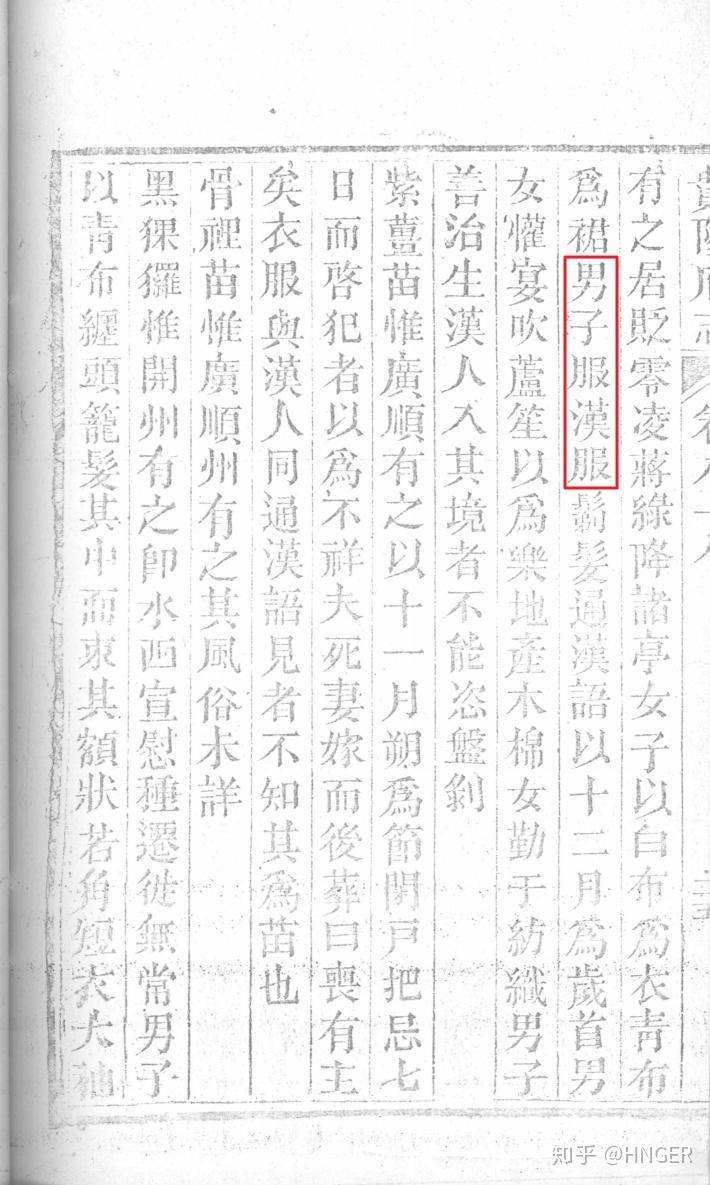 有之居貶零凌蔣綠降諸亭女子以白布爲衣靑布
爲裙男子服漢服鬀髮通漢語以十二月爲歲首男
女懽宴吹蘆笙以爲樂地產木棉女勤于紡織男子
善治生漢人入其境者不能恣盤剝
紫薑苗惟廣順有之以十一月朔爲節閉戸把忌七
日而啓犯者以爲不祥夫死妻嫁而後葬曰喪有主
矣衣服與漢人同通漢語見者不知其爲苗也
骨裡苗惟廣順州有之其風俗未詳
黑猓玀惟開州有之卽水西宣慰種遷徙無常男子
以靑布纒頭籠髮其中而束其額狀若角短衣大袖
知乎 @HNGER